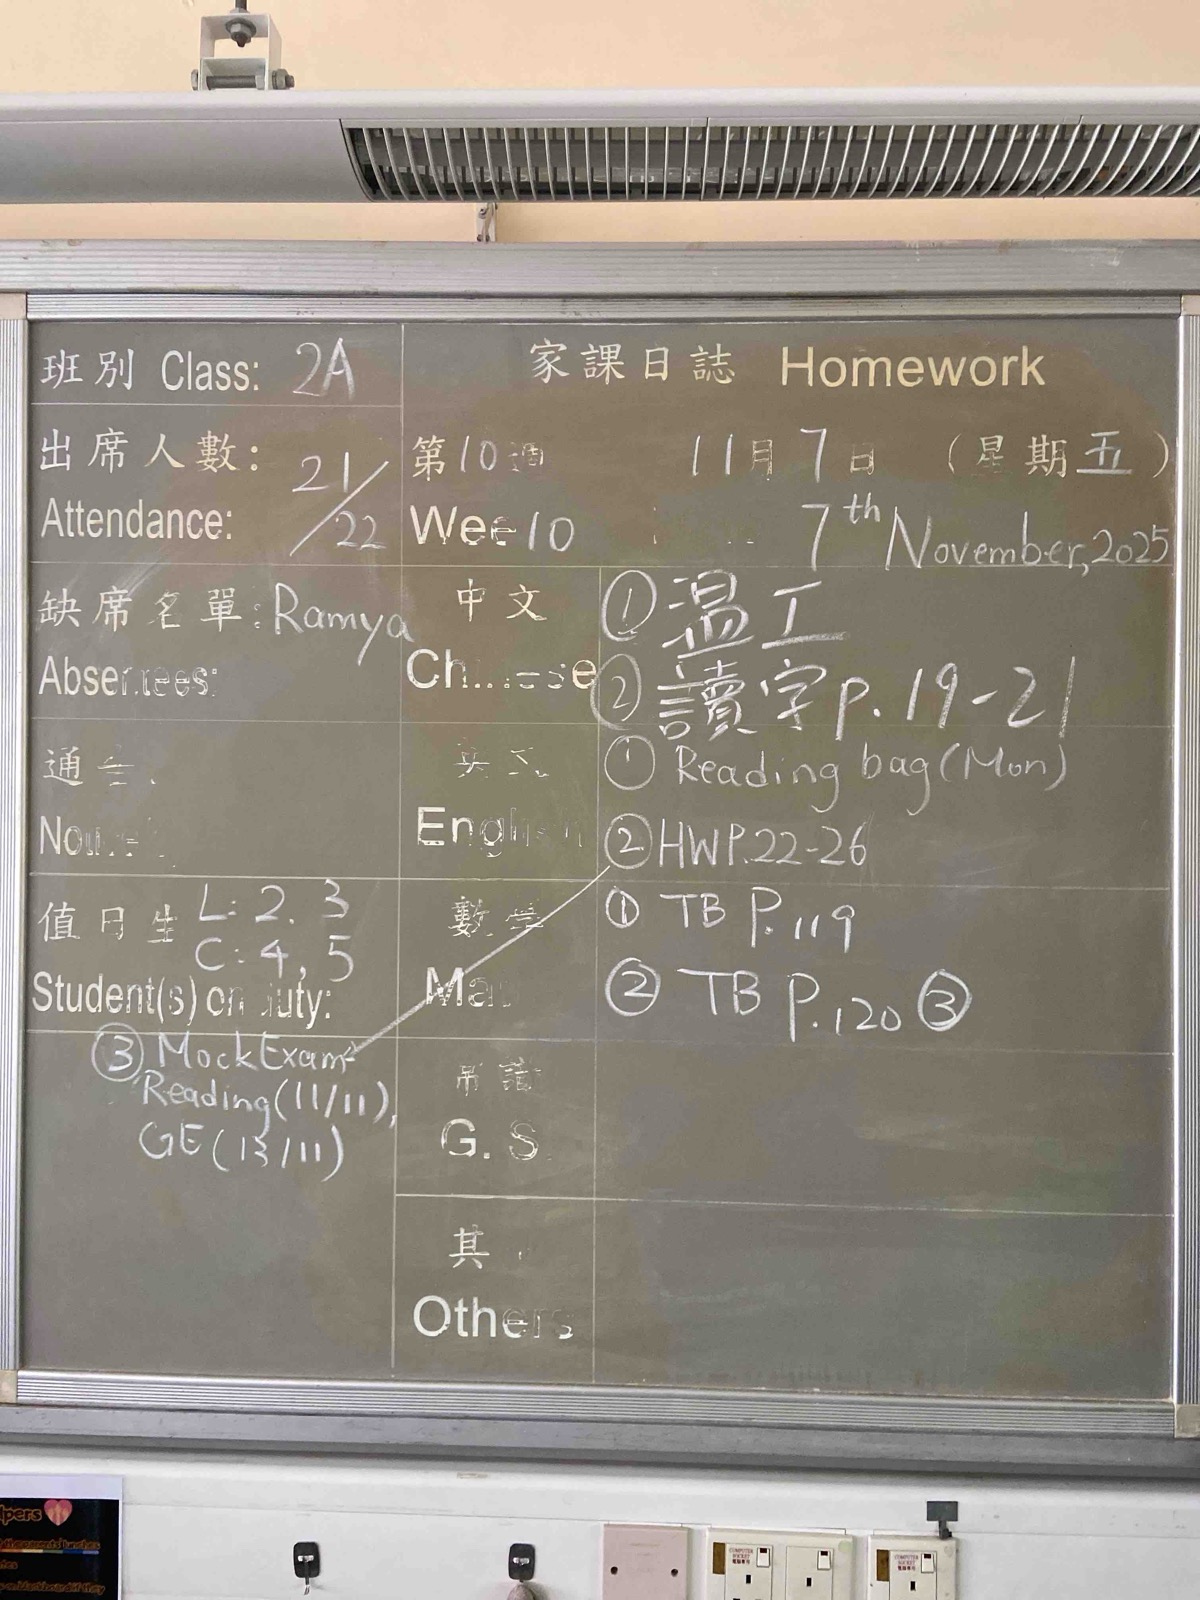 班別 Class: 2A
家課日誌 Homework
出席人數: 21/22
Attendance:
第10週 11月7日 (星期五)
Wee10 7th November, 2025
缺席名單: Ramya
Absentees:
中文
Chinese
① 溫工
② 讀字 p. 19-21
通告
英文
English
① Reading bag (Mon)
② HW P.22-26
③ Mock Exam-
Reading (11/11),
GE (13/11)
值日生 L: 2. 3
C: 4, 5
Student(s) on duty:
數學
Ma
① TB P.119
② TB P.120 ③
常識
G. S.
其
Others
lpers
COMPUTER SOCKET
電腦專用
COMPUTER SOCKET
電腦專用